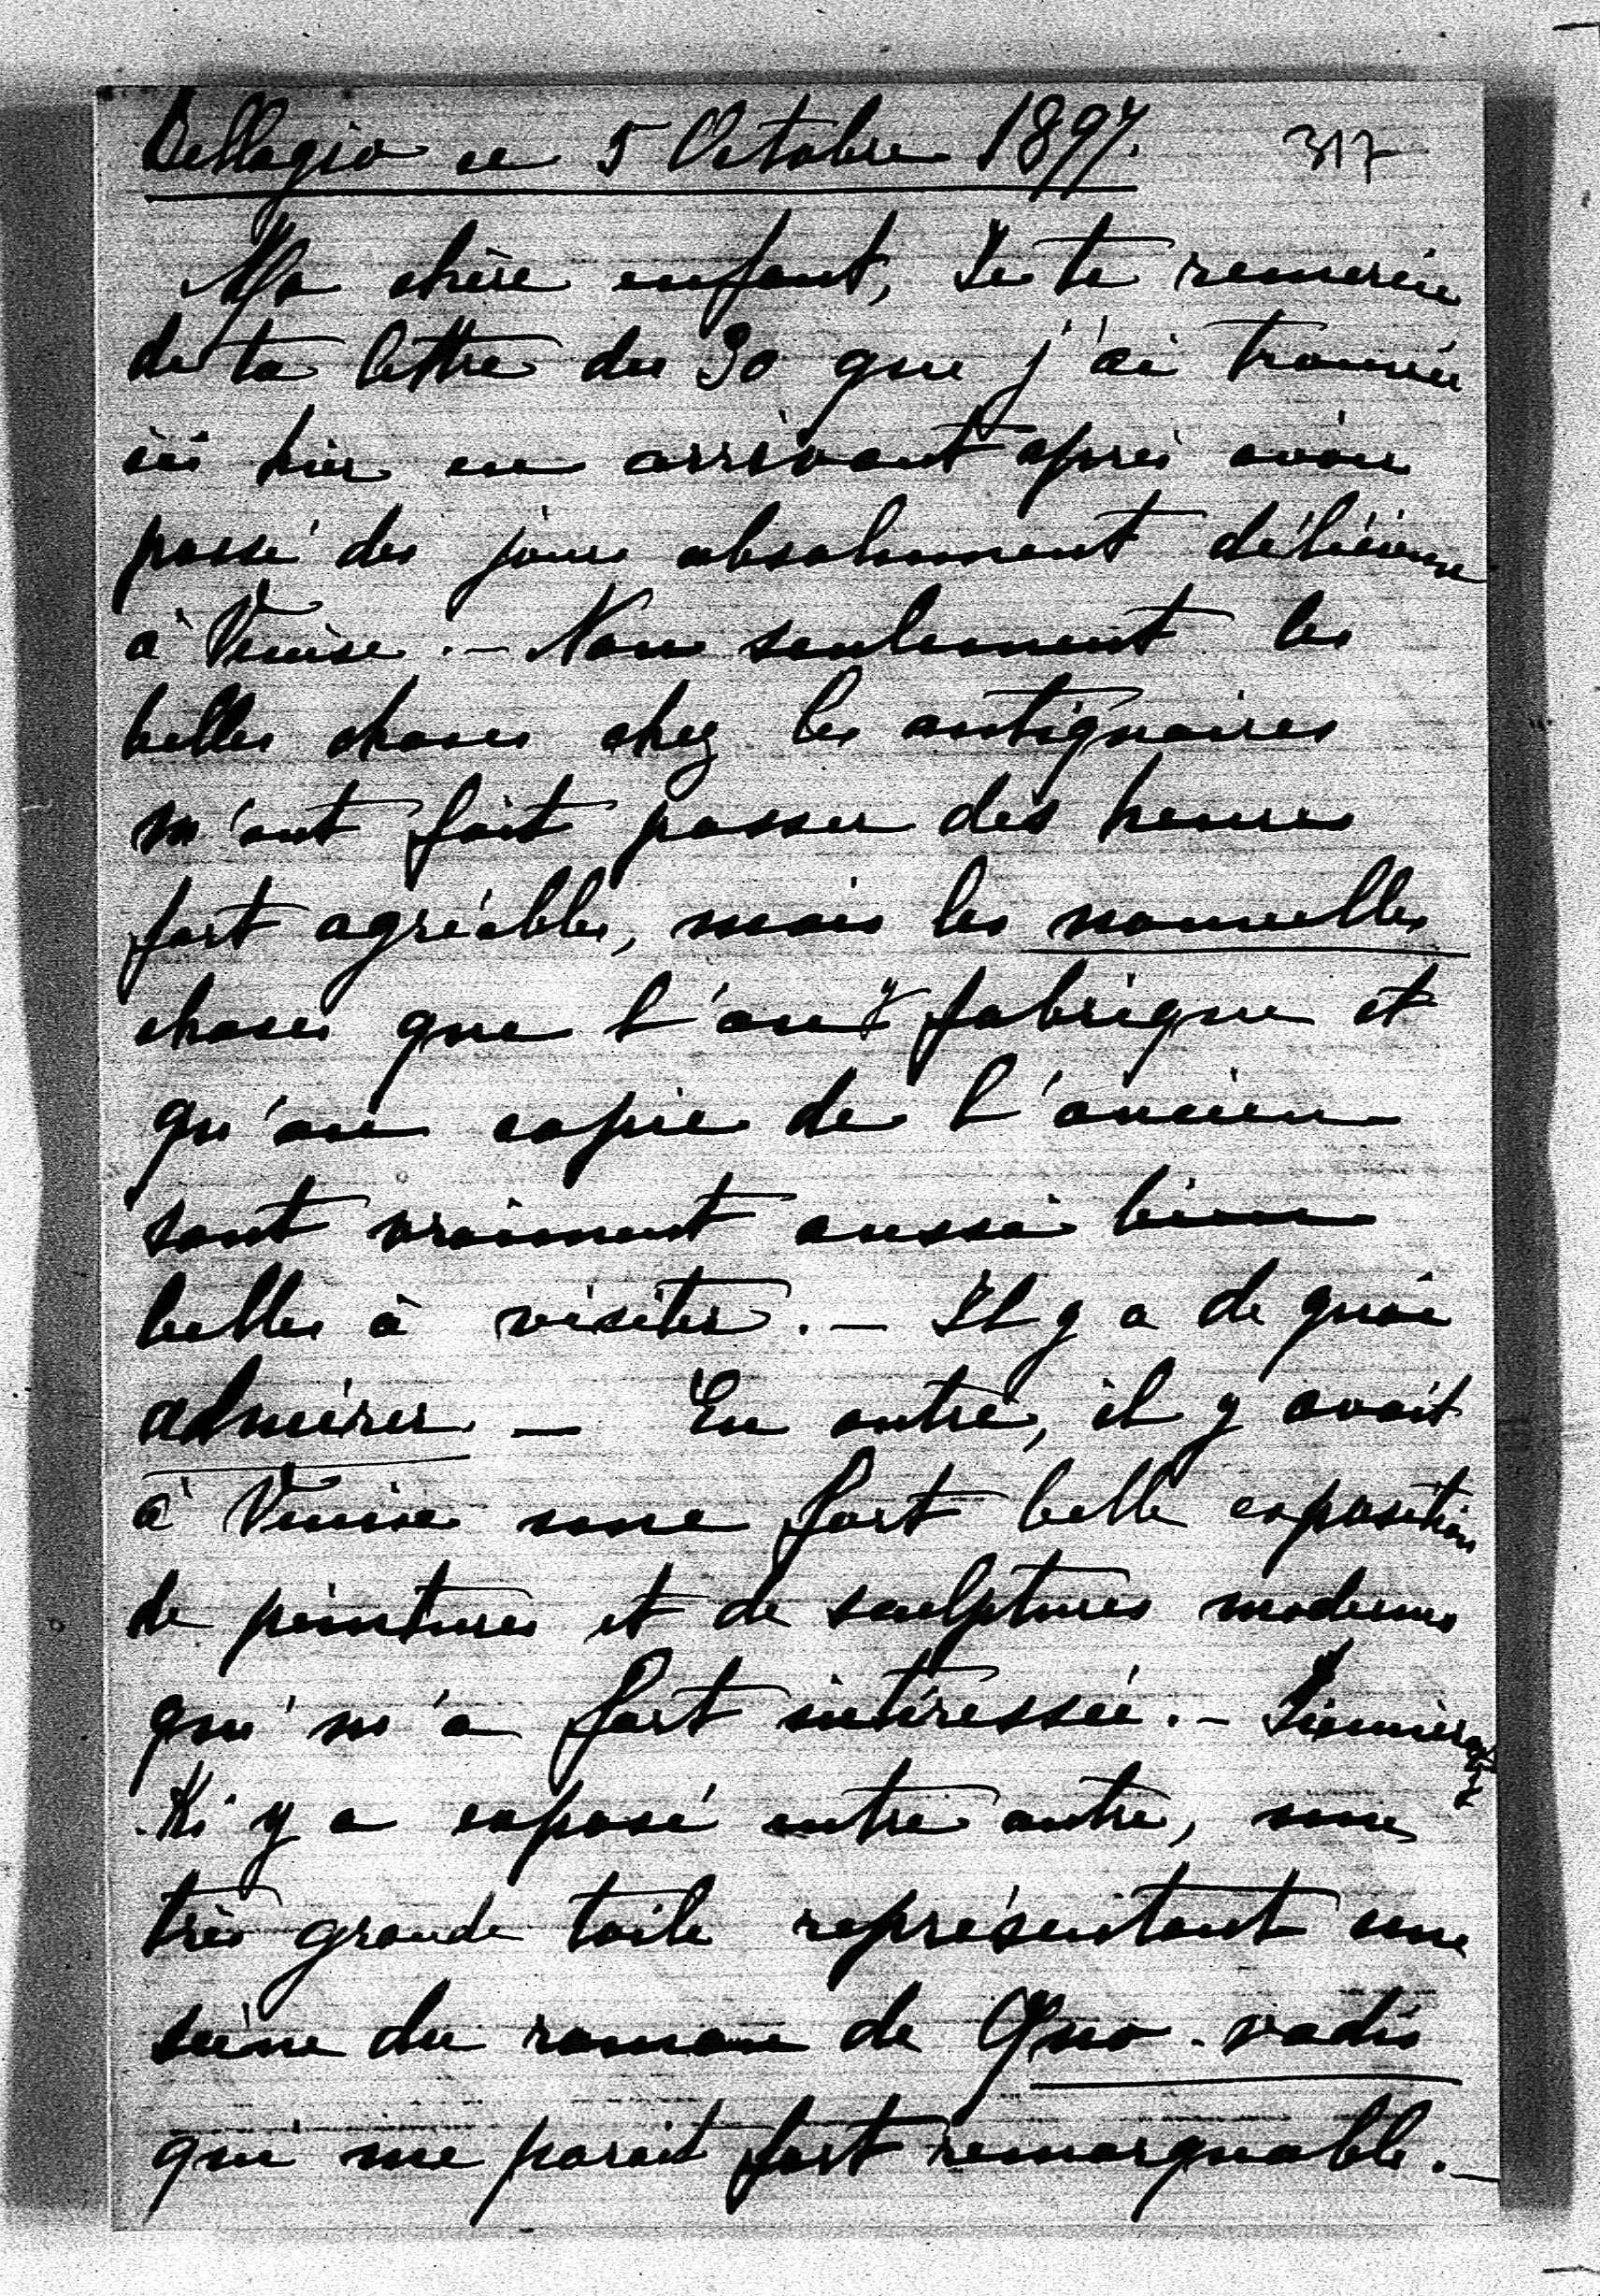 Bellagio ce 5 Octobre 1897. 317
Ma chère enfant, Je te remercie
de ta lettre du 30 que j'ai trouvée
ici hier en arrivant après avoir
passé des jours absolument délicieux
à Venise. – Non seulement les
belles choses chez les antiquaires
m'ont fait passer des heures
fort agréables, mais les nouvelles
choses que l'on y fabrique et
qu'on copie de l'ancien
sont vraiment aussi bien
belles à visiter. – Il y a de quoi
admirer – En outre, il y avait
à Venise une fort belle exposition
de peintures et de sculptures modernes
qui m'a fort intéressée. –
ki y a exposé entre autre, une
très grande toile représentant une
scène du roman de Quo-vadis
qui me parait fort remarquable. –